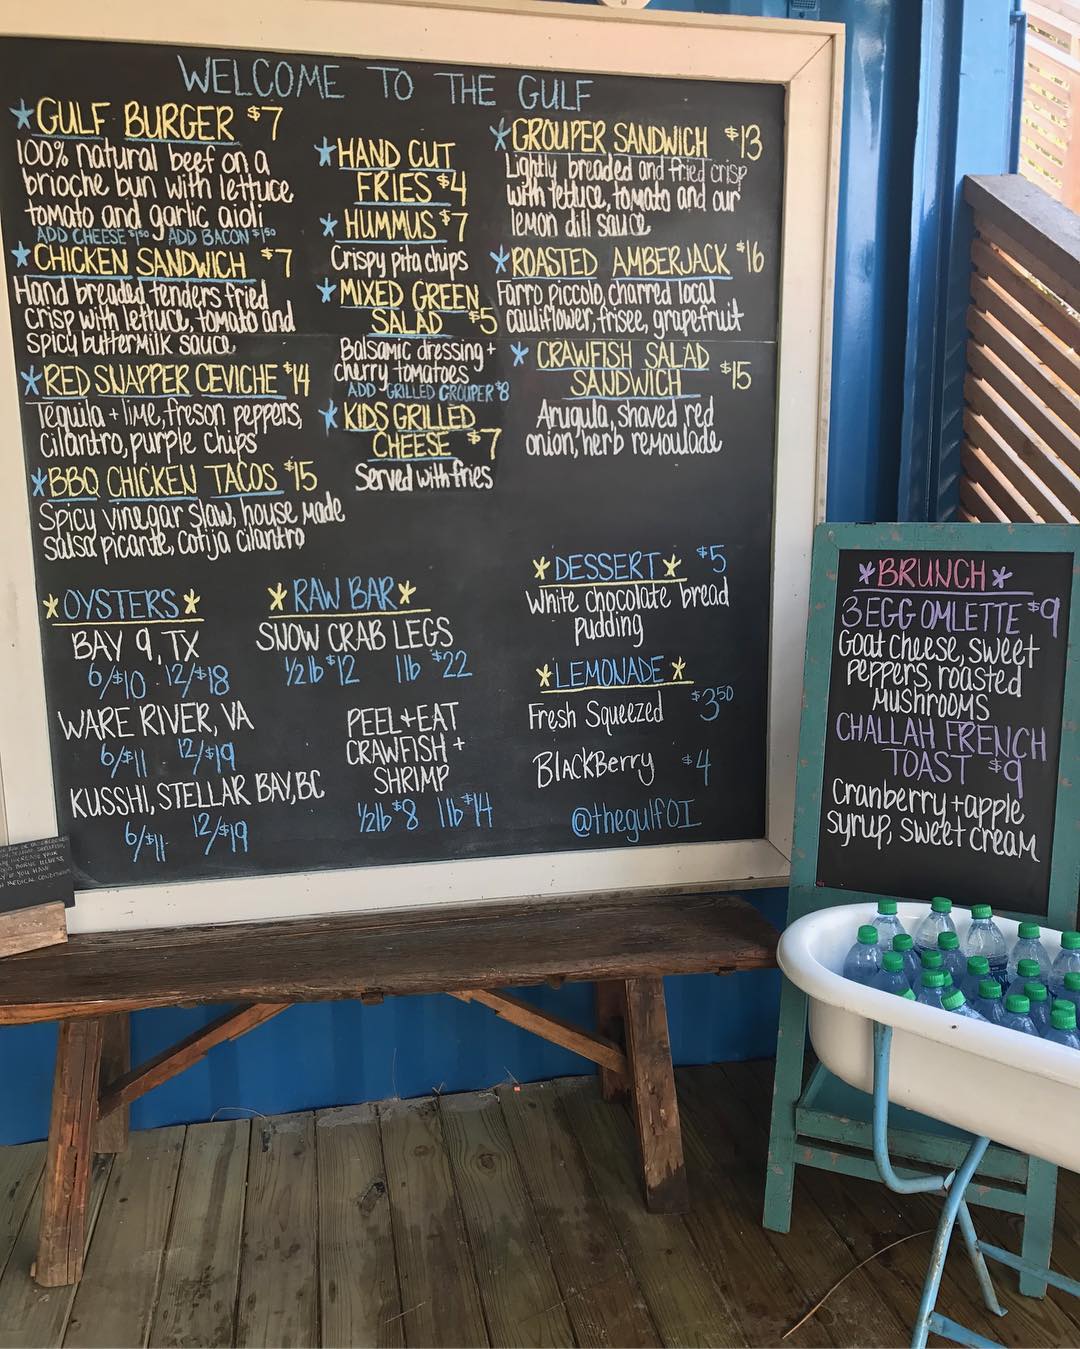 WELCOME TO THE GULF
GULF BURGER $7
100% natural beef on a
brioche bun with lettuce
tomato and garlic aioli
ADD CHEESE $1.50 ADD BACON $1.50
CHICKEN SANDWICH $7
Hand breaded tenders fried
crisp with lettuce, tomato and
spicy buttermilk sauce
RED SNAPPER CEVICHE $14
Tequila + lime, freson peppers,
cilantro, purple chips
BBQ CHICKEN TACOS $15
Spicy vinegar slaw, house made
salsa picante, cotija cilantro
HAND CUT
FRIES $4
HUMMUS $7
Crispy pita chips
MIXED GREEN
SALAD $5
Balsamic dressing +
cherry tomatoes
ADD GRILLED GROUPER $8
KIDS GRILLED
CHEESE $7
Served with fries
GROUPER SANDWICH $13
Lightly breaded and fried crisp
with lettuce, tomato and our
lemon dill sauce
ROASTED AMBERJACK $16
Farro piccolo, charred local
cauliflower, frisee, grapefruit
CRAWFISH SALAD
SANDWICH $15
Arugula, shaved red
onion, herb remoulade
OYSTERS
BAY 9, TX
6/$10 12/$18
WARE RIVER, VA
6/$11 12/$19
KUSSHI, STELLAR BAY, BC
6/$11 12/$19
RAW BAR
SNOW CRAB LEGS
1/2 lb $12 1 lb $22
PEEL + EAT
CRAWFISH +
SHRIMP
1/2 lb $8 1 lb $14
DESSERT $5
White chocolate bread
pudding
LEMONADE
Fresh Squeezed $3.50
BlackBerry $4
@thegulfOI
BRUNCH
3 EGG OMLETTE $9
Goat cheese, sweet
peppers, roasted
mushrooms
CHALLAH FRENCH
TOAST $9
Cranberry + apple
syrup, sweet cream